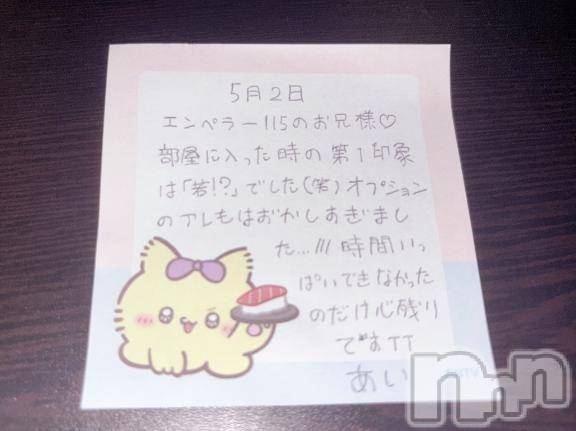 5月2日
エンペラー115のお兄様♡
部屋に入った時の第1印象
は「若!?」でした(笑)オプション
のアレもはおかしすぎまし
た...///時間いっ
ぱいできなかった
のだけ心残り
ですTT
あい
nmn